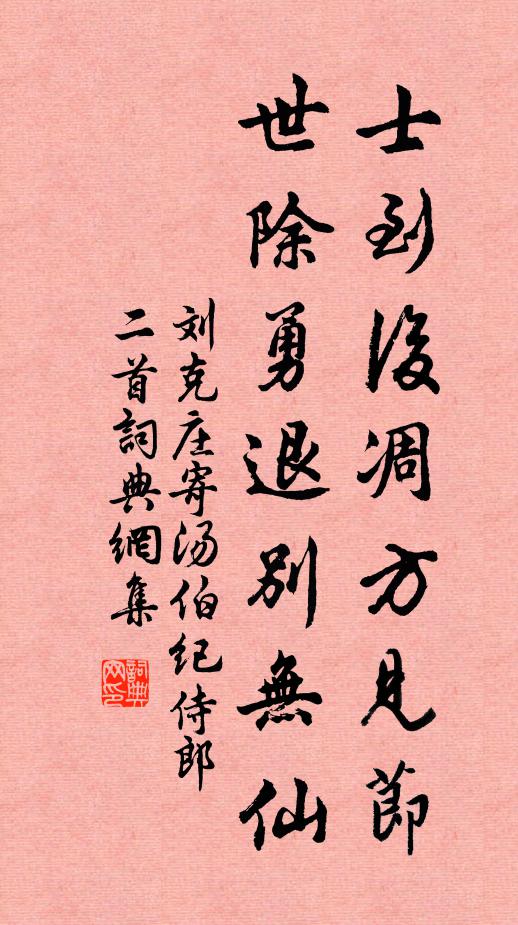 士到後凋方見節
世除勇退別無仙
刘克庄寄汤伯纪侍郎
二首詞典網集
詞典
网印